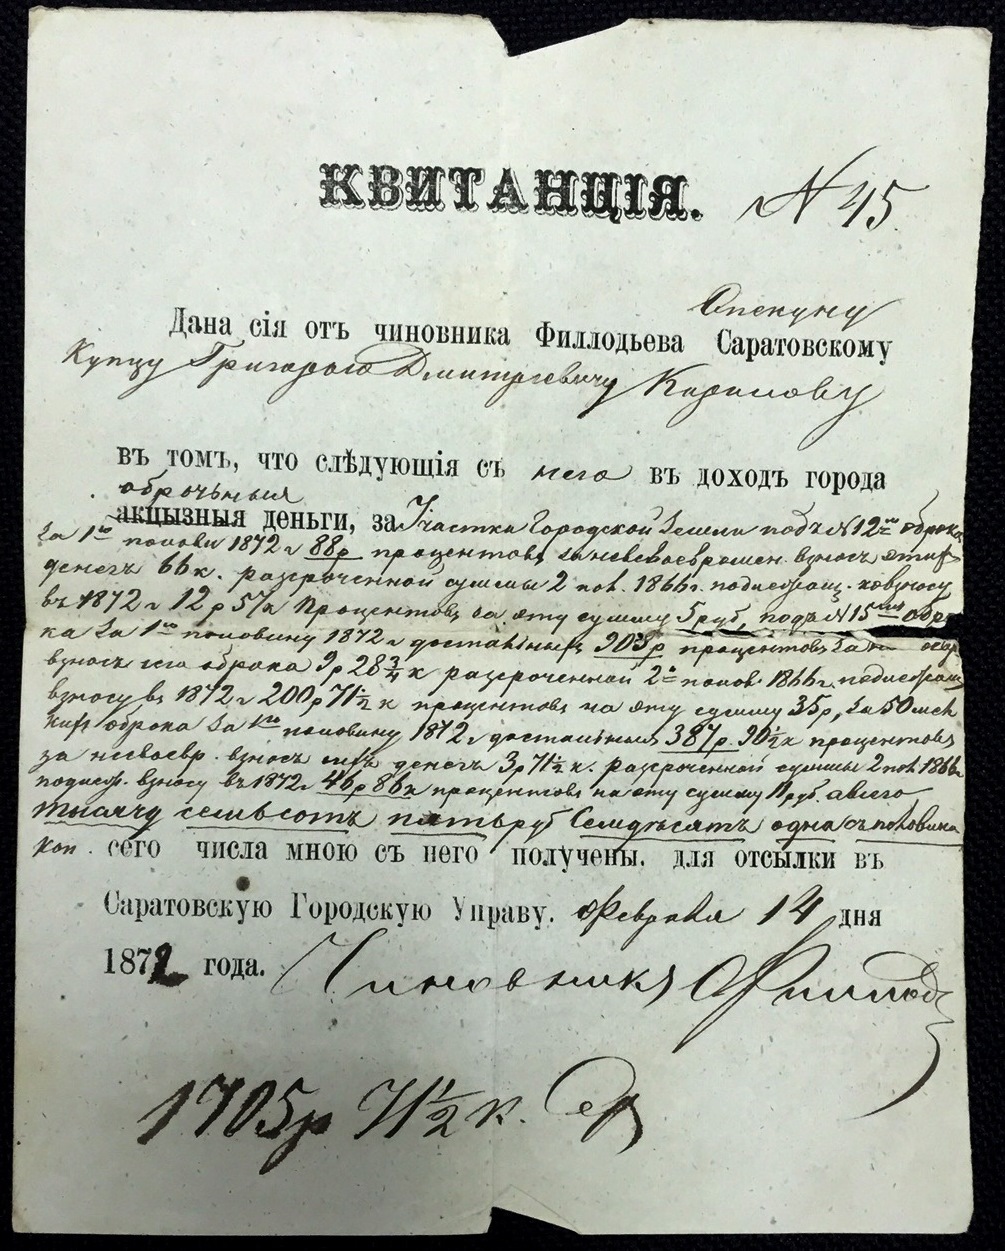 КВИТАНЦІЯ. N 45
Опекуну
Дана сія отъ чиновника Филлодьева Саратовскому
Купцу Григорью Дмитріевичу
въ томъ, что слѣдующія съ него въ доходъ города
оброчныя
акцызныя деньги, за Участки Городской Земли подъ N 12 оброка
за 1ю половин 1872 г 88 р процентовъ за несвоевремен. взносъ этихъ
денегъ 66 к. разсроченной суммы 2 пол. 1866 г. подлежащ. ко взносу
въ 1872 г 12 р 57 к процентовъ на эту сумму 5 руб, подъ N 15 обро
ка за 1ю половину 1872 г достальныя процентовъ за
взносъ сего оброка 9 р 28 3/4 к разсроченной 2й полов. 1866 г.
взносу въ 1872 г 200 р 71 1/2 к процентовъ на эту сумму 35 р, за
оброка за 1ю половину 1872 г достальныя 387 р. 90 1/2 к процентовъ
за несвоевр. взносъ сихъ денегъ 3 р 71 1/2 к. разсроченной суммы 2 пол. 1866 г
подлеж. взносу въ 1872 г 46 р 86 к процентовъ на эту сумму 11 руб. а всего
тысячу семьсотъ пять руб Семдѣсятъ одна съ половина
коп. сего числа мною съ него получены. для отсылки въ
Саратовскую Городскую Управу. Февраля 14 дня
1872 года. Чиновникъ
1705 р 71 1/2 к. Сер